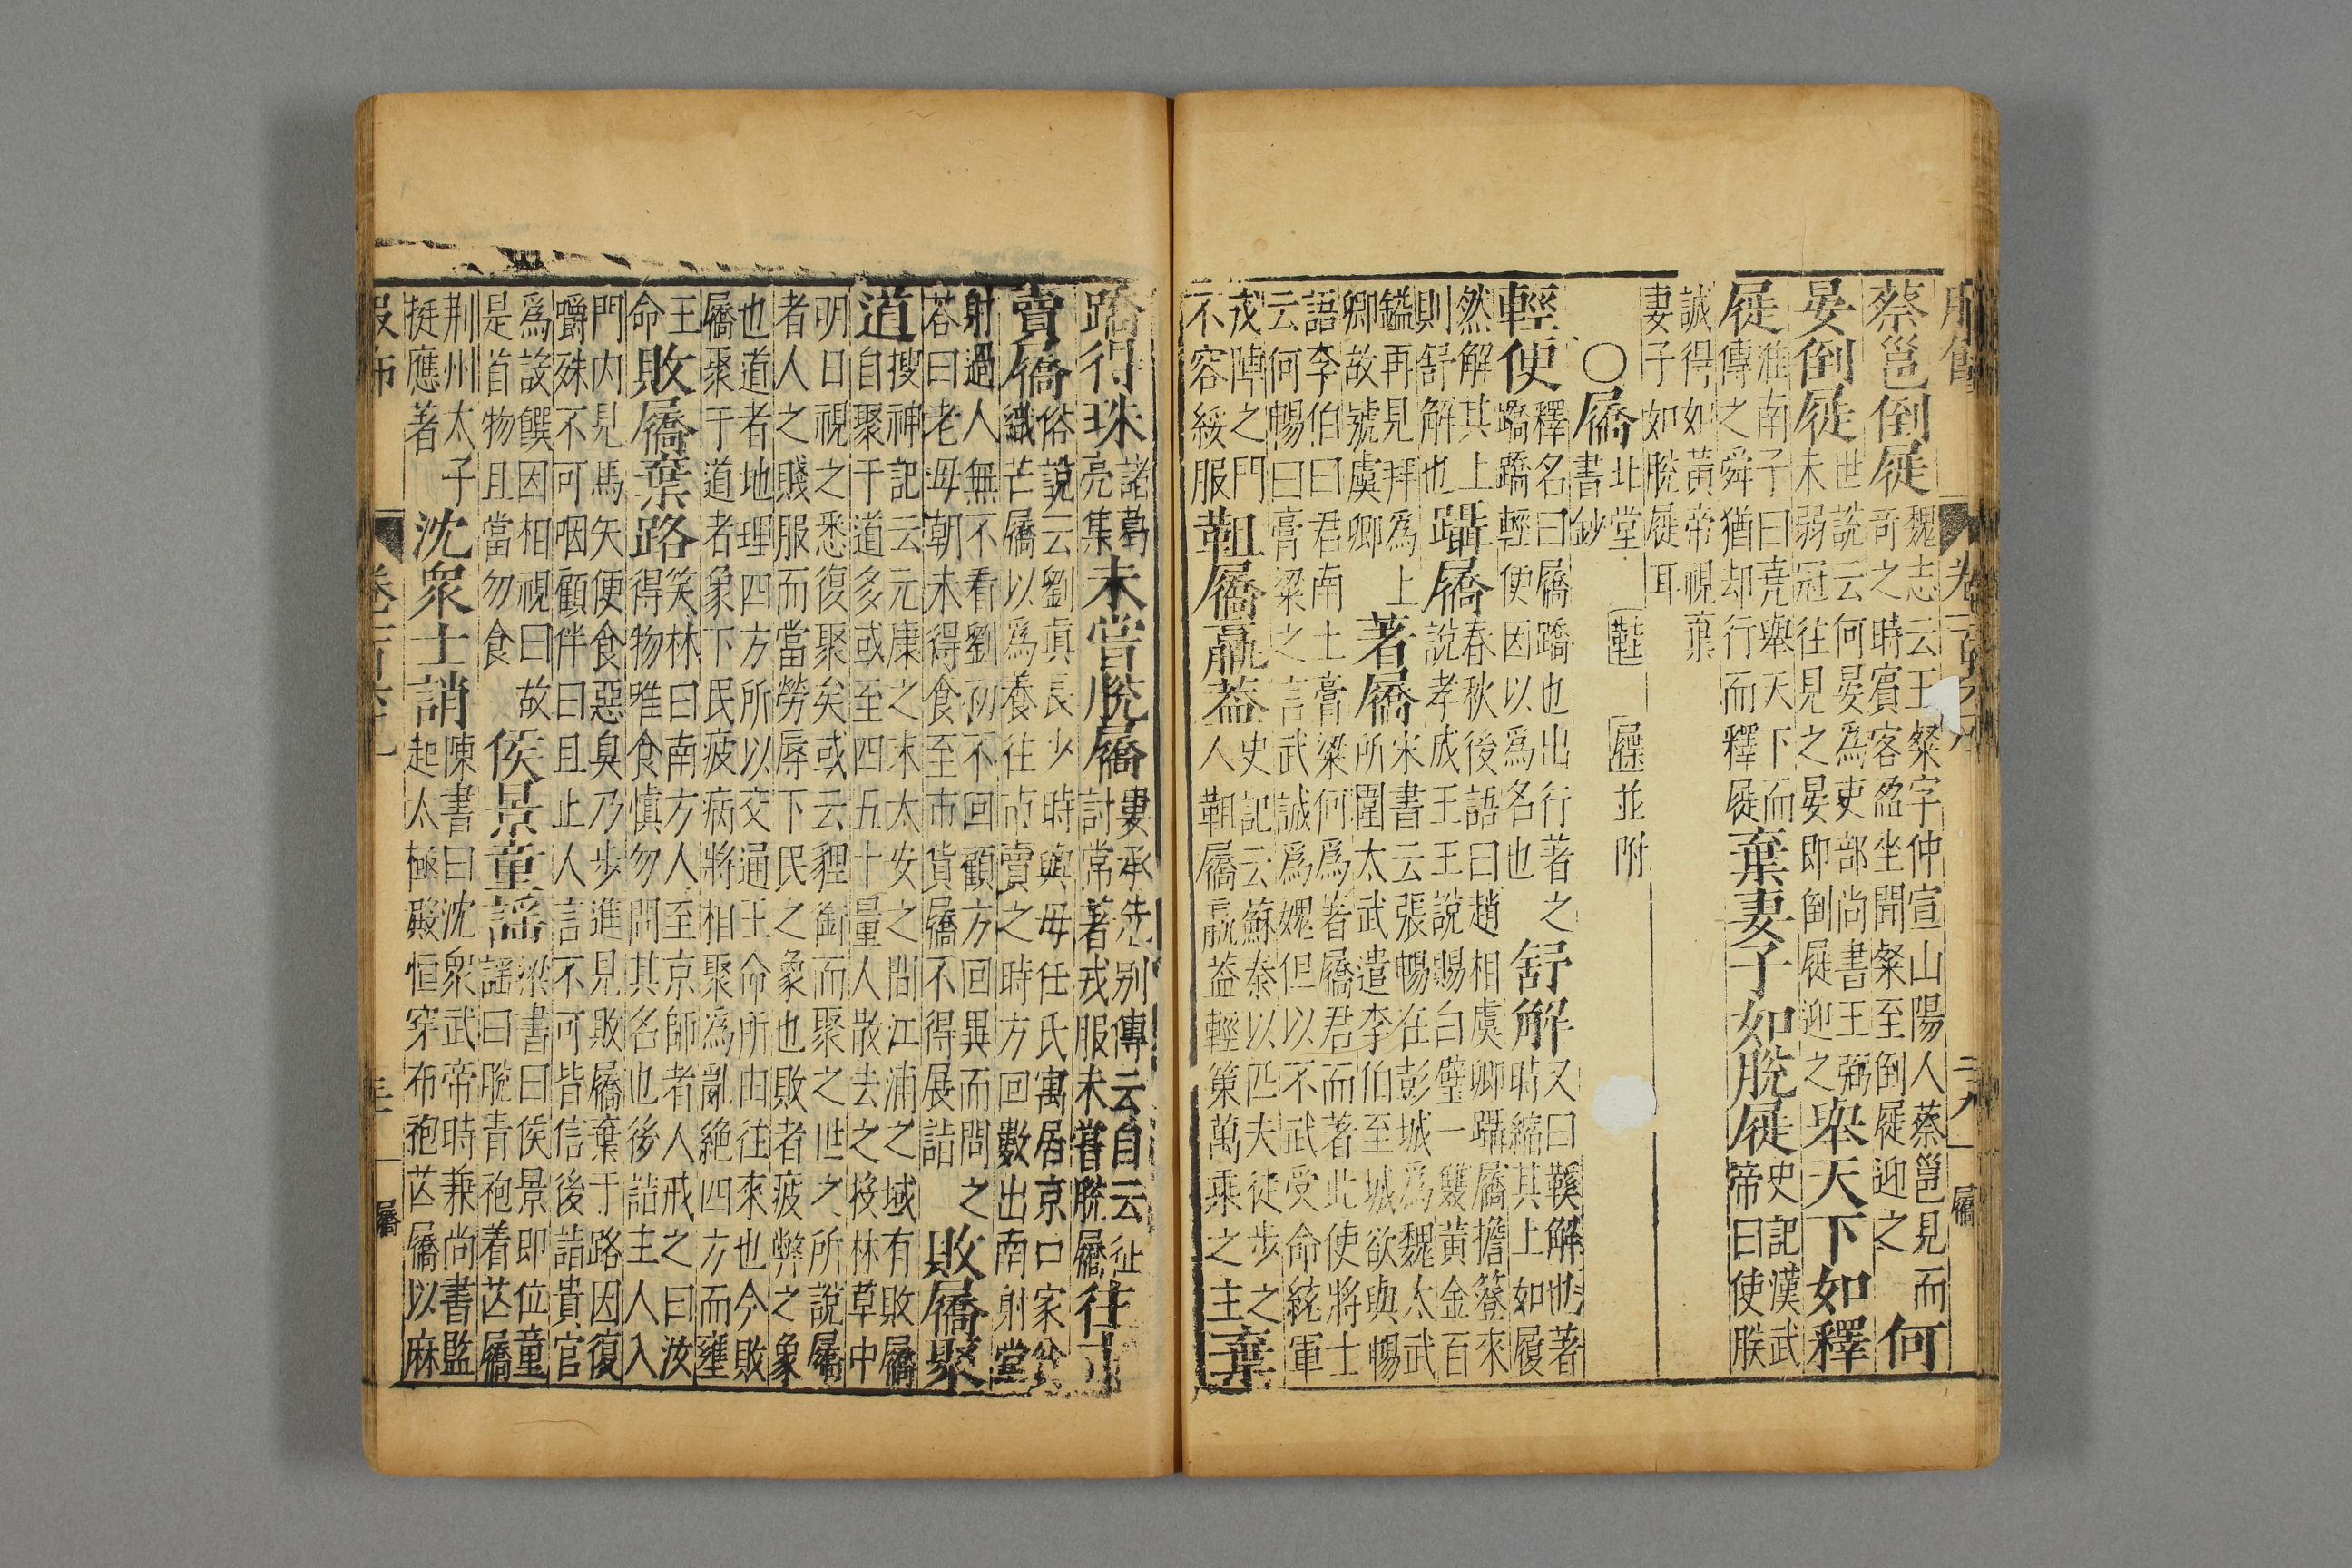 蔡邕倒屣
魏志云王粲字仲宣山陽人蔡邕見而
奇之時賓客盈坐聞粲至倒屣迎之
何
晏倒屣
世說云何晏爲吏部尚書王弼
未弱冠往見之晏即倒屣迎之
舉天下如釋
屣
淮南子曰堯舉天下而
傳之舜猶却行而釋屣
棄妻子如脫屣
史記漢武
帝曰使朕
誠得如黃帝視棄
妻子如脫屣耳
○屩
北堂
書鈔
鞋 屧並附
輕便
釋名曰屩蹻也出行著之
蹻蹻輕便因以爲名也
舒解
又曰鞵解也著
時縮其上如履
然解其上
則舒解也
躡屩
春秋後語曰趙相虞卿躡屩擔簦來
說孝成王王說賜白璧一雙黃金百
鎰再見拜爲上
卿故號虞卿
著屩
宋書云張暢在彭城爲魏太武
所圍太武遣李伯至城欲與暢
語李伯曰君南土膏粱何爲著屩君而著此使將士
云何暢曰膏粱之言武誠爲媿但以不武受命統軍
戎陣之門
不容緩服
靻屩羸葢
史記云蘇秦以匹夫徒步之
人靻屩羸葢輕策萬乘之主
棄
蹻得珠
諸葛
亮集
未嘗脫屩
婁承先别傳云自云征
討常著戎服未嘗脫屩
往市
賣屩
俗說云劉真長少時與母任氏寓居京口家貧
織芒屩以爲養往市賣之時方回數出南射堂
射過人無不看劉初不回顧方回異而問之
荅曰老母朝未得食至市貨屩不得展詣
敗屩聚
道
搜神記云元康之末太安之間江浦之域有敗屩
自聚于道多或至四五十量人散去之投林草中
明日視之悉復聚矣或云貍銜而聚之世之所說屩
者人之賤服而當勞辱下民之象也敗者疲弊之象
也道者地理四方所以交通王命所由往來也今敗
屩聚于道者象下民疲病將相聚爲亂絕四方而壅
王
命
敗屩棄路
笑林曰南方人至京師者人戒之曰汝
得物唯食慎勿問其名也後詣主人入
門内見馬矢便食惡臭乃步進見敗屩棄于路因復
嚼殊不可咽顧伴曰且止人言不可皆信後詣貴官
爲設饌因相視曰故
是首物且當勿食
侯景童謡
梁書曰侯景即位童
謡曰脫青袍着芒屩
荆州太子
挺應著
沈衆士誚
陳書曰沈衆武帝時兼尚書監
起太極殿恒穿布袍芒屩以麻